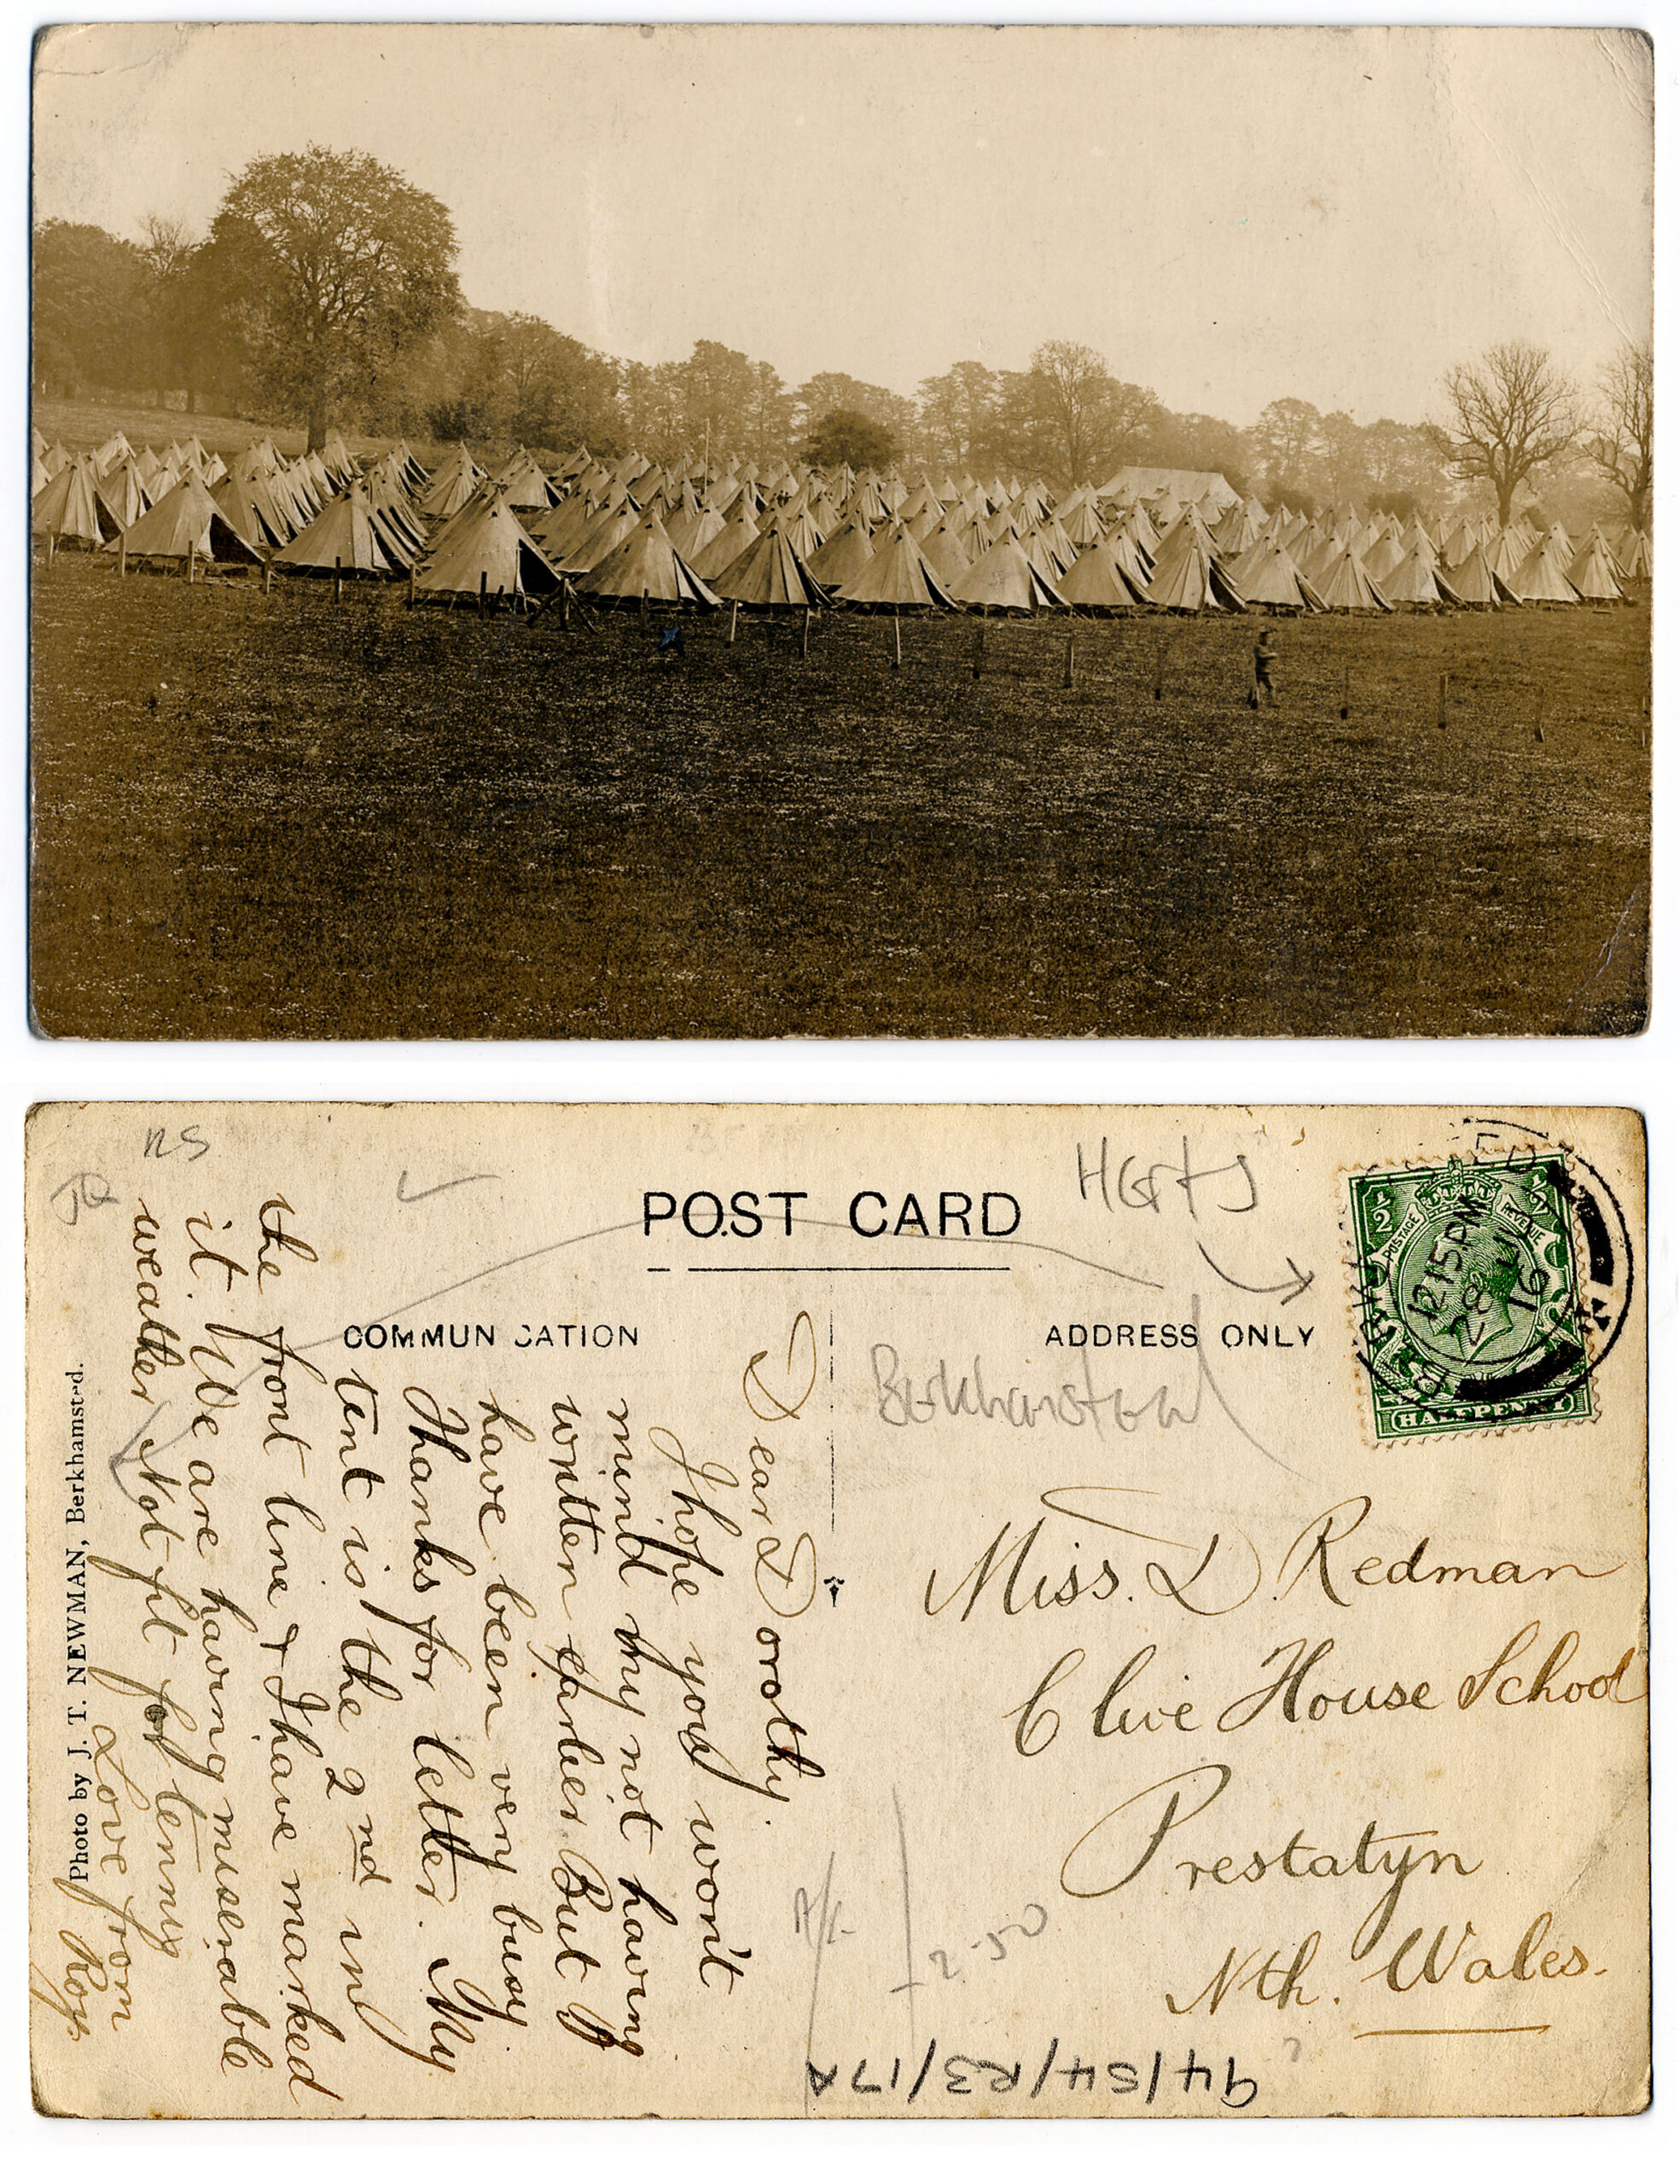 RS
POST CARD
Herts
COMMUNICATION
ADDRESS ONLY
Berkhamsted
1/2 1/2
POSTAGE REVENUE
12 15 PM
28 JU
16
HALFPENNY
Dear Dorothy.
I hope you won't
mind my not having
written earlier But I
have been very busy
Thanks for letter. My
tent is the 2nd in
the front line & I have marked
it. We are having miserable
weather Not fit for tennis
Love from
Roy.
Photo by J. T. NEWMAN, Berkhamsted.
Miss. D. Redman
Clive House School
Prestatyn
Nth. Wales.
2-50
94/54/R3/17A